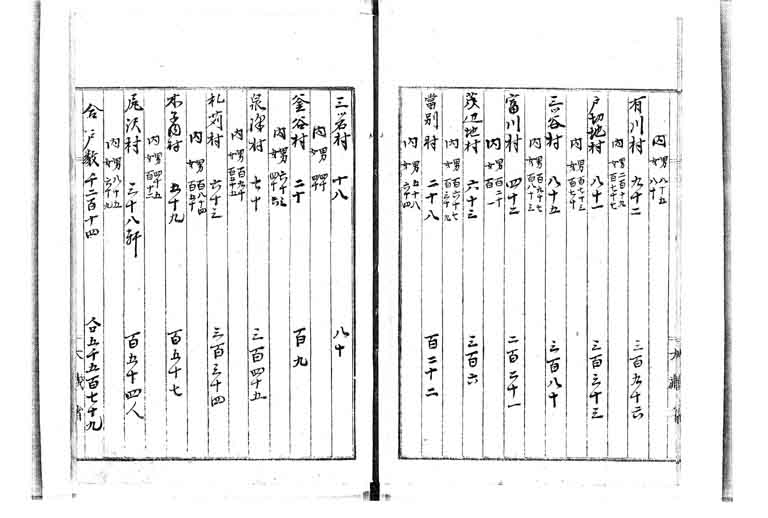 内 男八十五
女八十
有川村 九十二 三百九十六
内 男二百十九
女百七十七
戸切地村 八十一 三百三十三
内 男百七十三
女
三谷村 八十五 三百八十
内 男百九十七
女百八十三
富川村 四十二 二百二十一
内 男百二十一
女百
茂辺地村 六十三 三百六
内 男百六十七
女百三十九
當別村 二十八 百二十二
内 男五十八
女六十四
三岩村 十八 八十
内 男四十
女四十
釜谷村 二十 百九
内 男六十三
女四十六
泉澤村 七十 三百四十五
内 男百九十
女百五十五
札苅村 六十三 三百三十四
内 男百八十四
女百五十
木子内村 五十九 百五十七
内 男四十五
女百十二
尾沢村 三十八軒 百五十四人
内 男八十五
女六十九
合戸数千二百十四 合五千五百七十九
大蔵省